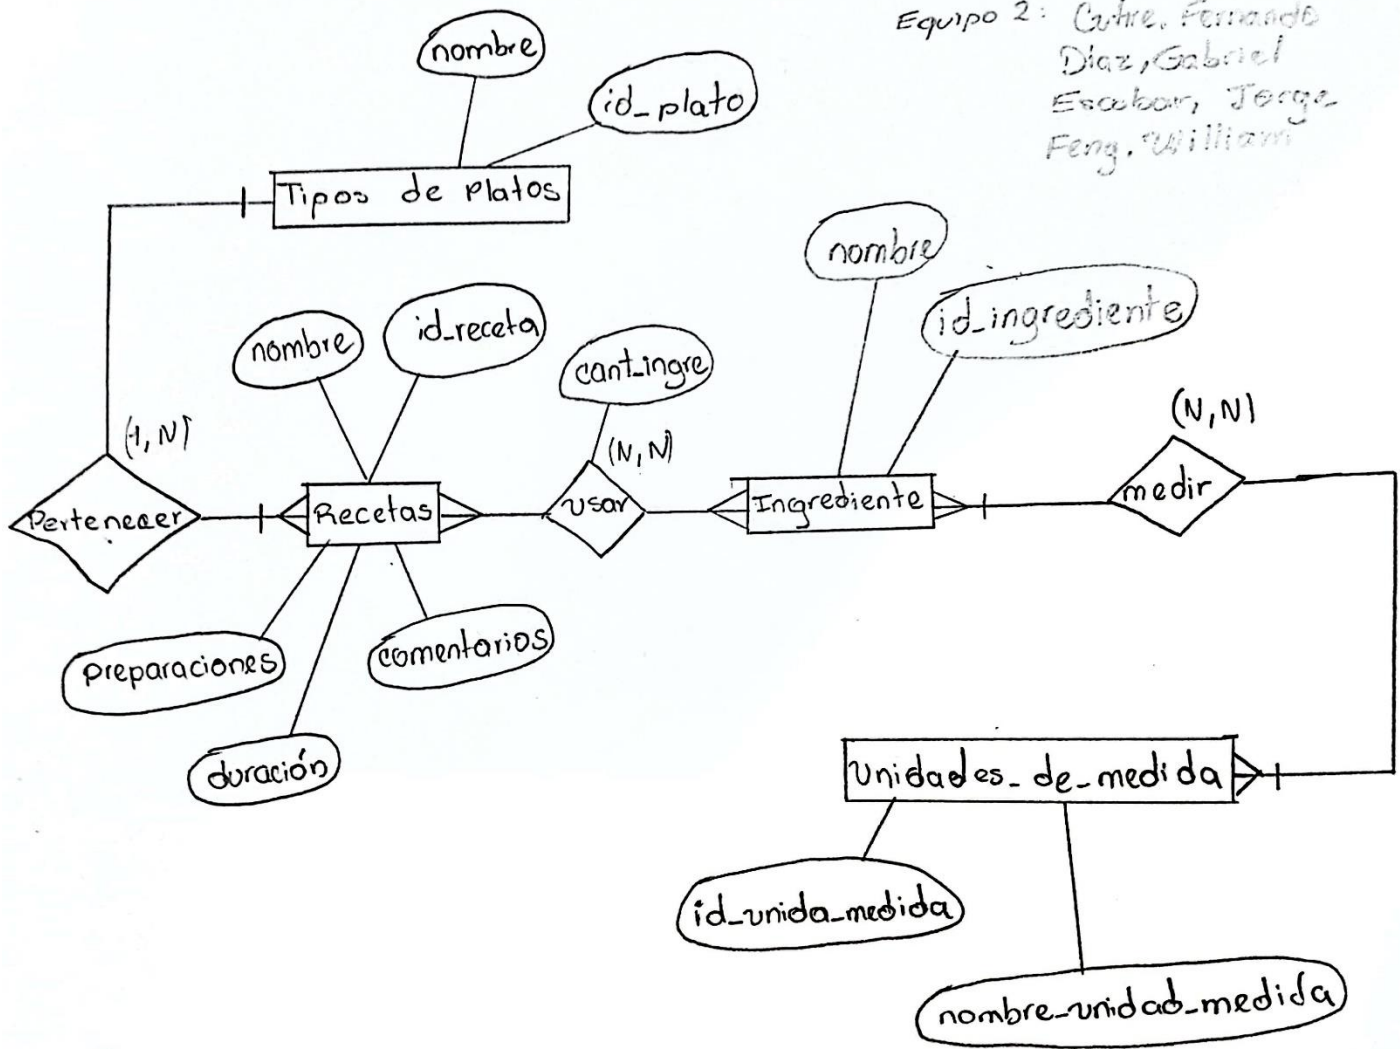 Equipo 2: Cutire, Fernando
Díaz, Gabriel
Escobar, Jorge
Feng, William
nombre
id_plato
Tipos de Platos
nombre
id_ingrediente
nombre
id_receta
cant_ingre
(1, N)
(N, N)
(N, N)
Pertenecer
Recetas
usar
Ingrediente
medir
preparaciones
comentarios
duración
Unidades_de_medida
id_unida_medida
nombre_unidad_medida